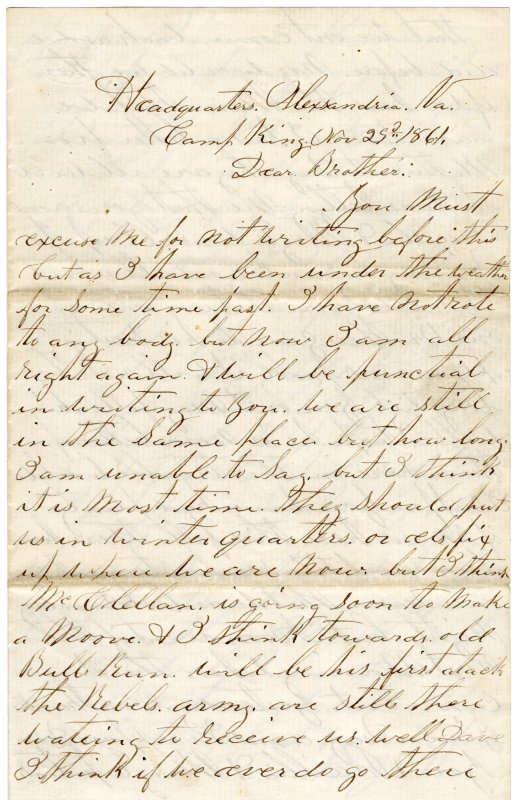 Headquarters. Alexandria. Va.
Camp King Nov 29th 1861.
Dear Brother.
You Must
excuse Me for not writing before this
but as I have been under the weather
for Some time past. I have not rote
to any body. but now I am all
right again. & will be punctial
in writing to You. we are still
in the Same place. but how long
I am unable to Say. but I think
it is Most time. they should put
us in winter quarters. or els fix
up where we are now. but I think
McClellan. is going soon to Make
a Moove. & I think towards. old
Bulls Run. will be his first atack
the Rebels. army. are still there
wateing to receive us. well Dave
I think if we ever do go there